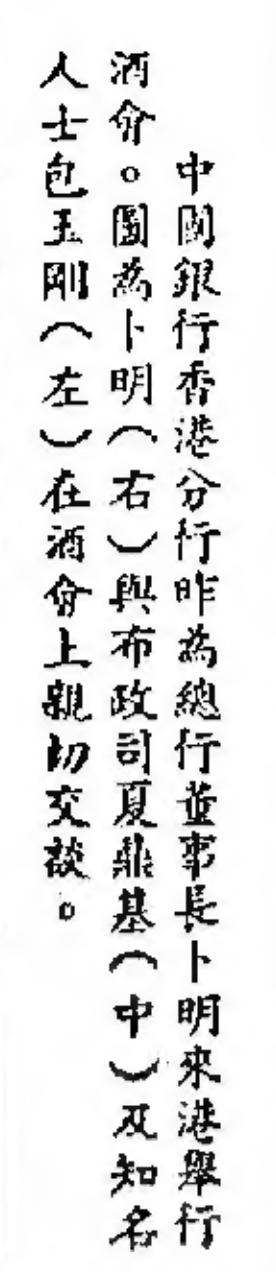 中國銀行香港分行昨為總行董事長卜明來港舉行
酒會。圖為卜明（右）與布政司夏鼎基（中）及知名
人士包玉剛（左）在酒會上親切交談。